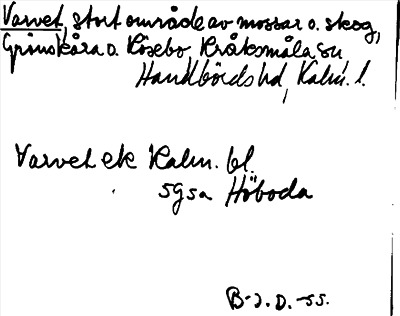 Varvet, stort område av mossar o. skog,
Grönskåra o. Rösebo, Kråksmåla sn,
Handbörds hd, Kalm. l.
Varvet ek Kalm. bl.
5g5a Höboda
B-J. D. -55.